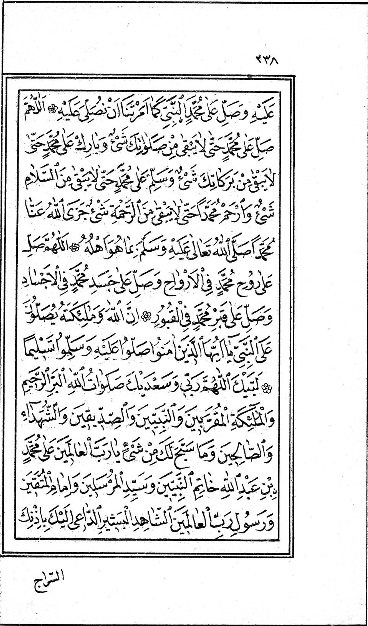 ٢٣٨
عَلَيْهِ وَصَلِّ عَلَى مُحَمَّدٍ النَّبِيِّ كَمَا أَمَرْتَنَا أَنْ نُصَلِّيَ عَلَيْهِ ۞ اَللّٰهُمَّ
صَلِّ عَلَى مُحَمَّدٍ حَتّٰى لَا يَبْقٰى مِنْ صَلَوَاتِكَ شَيْءٌ وَبَارِكْ عَلَى مُحَمَّدٍ حَتّٰى
لَا يَبْقٰى مِنْ بَرَكَاتِكَ شَيْءٌ وَسَلِّمْ عَلَى مُحَمَّدٍ حَتّٰى لَا يَبْقٰى مِنَ السَّلَامِ
شَيْءٌ وَارْحَمْ مُحَمَّدًا حَتّٰى لَا يَبْقٰى مِنَ الرَّحْمَةِ شَيْءٌ جَزَى اللّٰهُ عَنَّا
مُحَمَّدًا صَلَّى اللّٰهُ تَعَالٰى عَلَيْهِ وَسَلَّمَ بِمَا هُوَ أَهْلُهُ ۞ اَللّٰهُمَّ صَلِّ
عَلَى رُوحِ مُحَمَّدٍ فِي الْأَرْوَاحِ وَصَلِّ عَلَى جَسَدِ مُحَمَّدٍ فِي الْأَجْسَادِ
وَصَلِّ عَلَى قَبْرِ مُحَمَّدٍ فِي الْقُبُورِ ۞ إِنَّ اللّٰهَ وَمَلٰئِكَتَهُ يُصَلُّونَ
عَلَى النَّبِيِّ يَا أَيُّهَا الَّذِينَ اٰمَنُوا صَلُّوا عَلَيْهِ وَسَلِّمُوا تَسْلِيمًا
۞ لَبَّيْكَ اللّٰهُمَّ رَبِّي وَسَعْدَيْكَ صَلَوَاتُ اللّٰهِ الْبَرِّ الرَّحِيمِ
وَالْمَلٰئِكَةِ الْمُقَرَّبِينَ وَالنَّبِيِّينَ وَالصِّدِّيقِينَ وَالشُّهَدَاءِ
وَالصَّالِحِينَ وَمَا سَبَّحَ لَكَ مِنْ شَيْءٍ يَا رَبَّ الْعَالَمِينَ عَلَى مُحَمَّدِ
بْنِ عَبْدِ اللّٰهِ خَاتَمِ النَّبِيِّينَ وَسَيِّدِ الْمُرْسَلِينَ وَإِمَامِ الْمُتَّقِينَ
وَرَسُولِ رَبِّ الْعَالَمِينَ الشَّاهِدِ الْبَشِيرِ الدَّاعِي إِلَيْكَ بِإِذْنِكَ
السِّرَاجِ